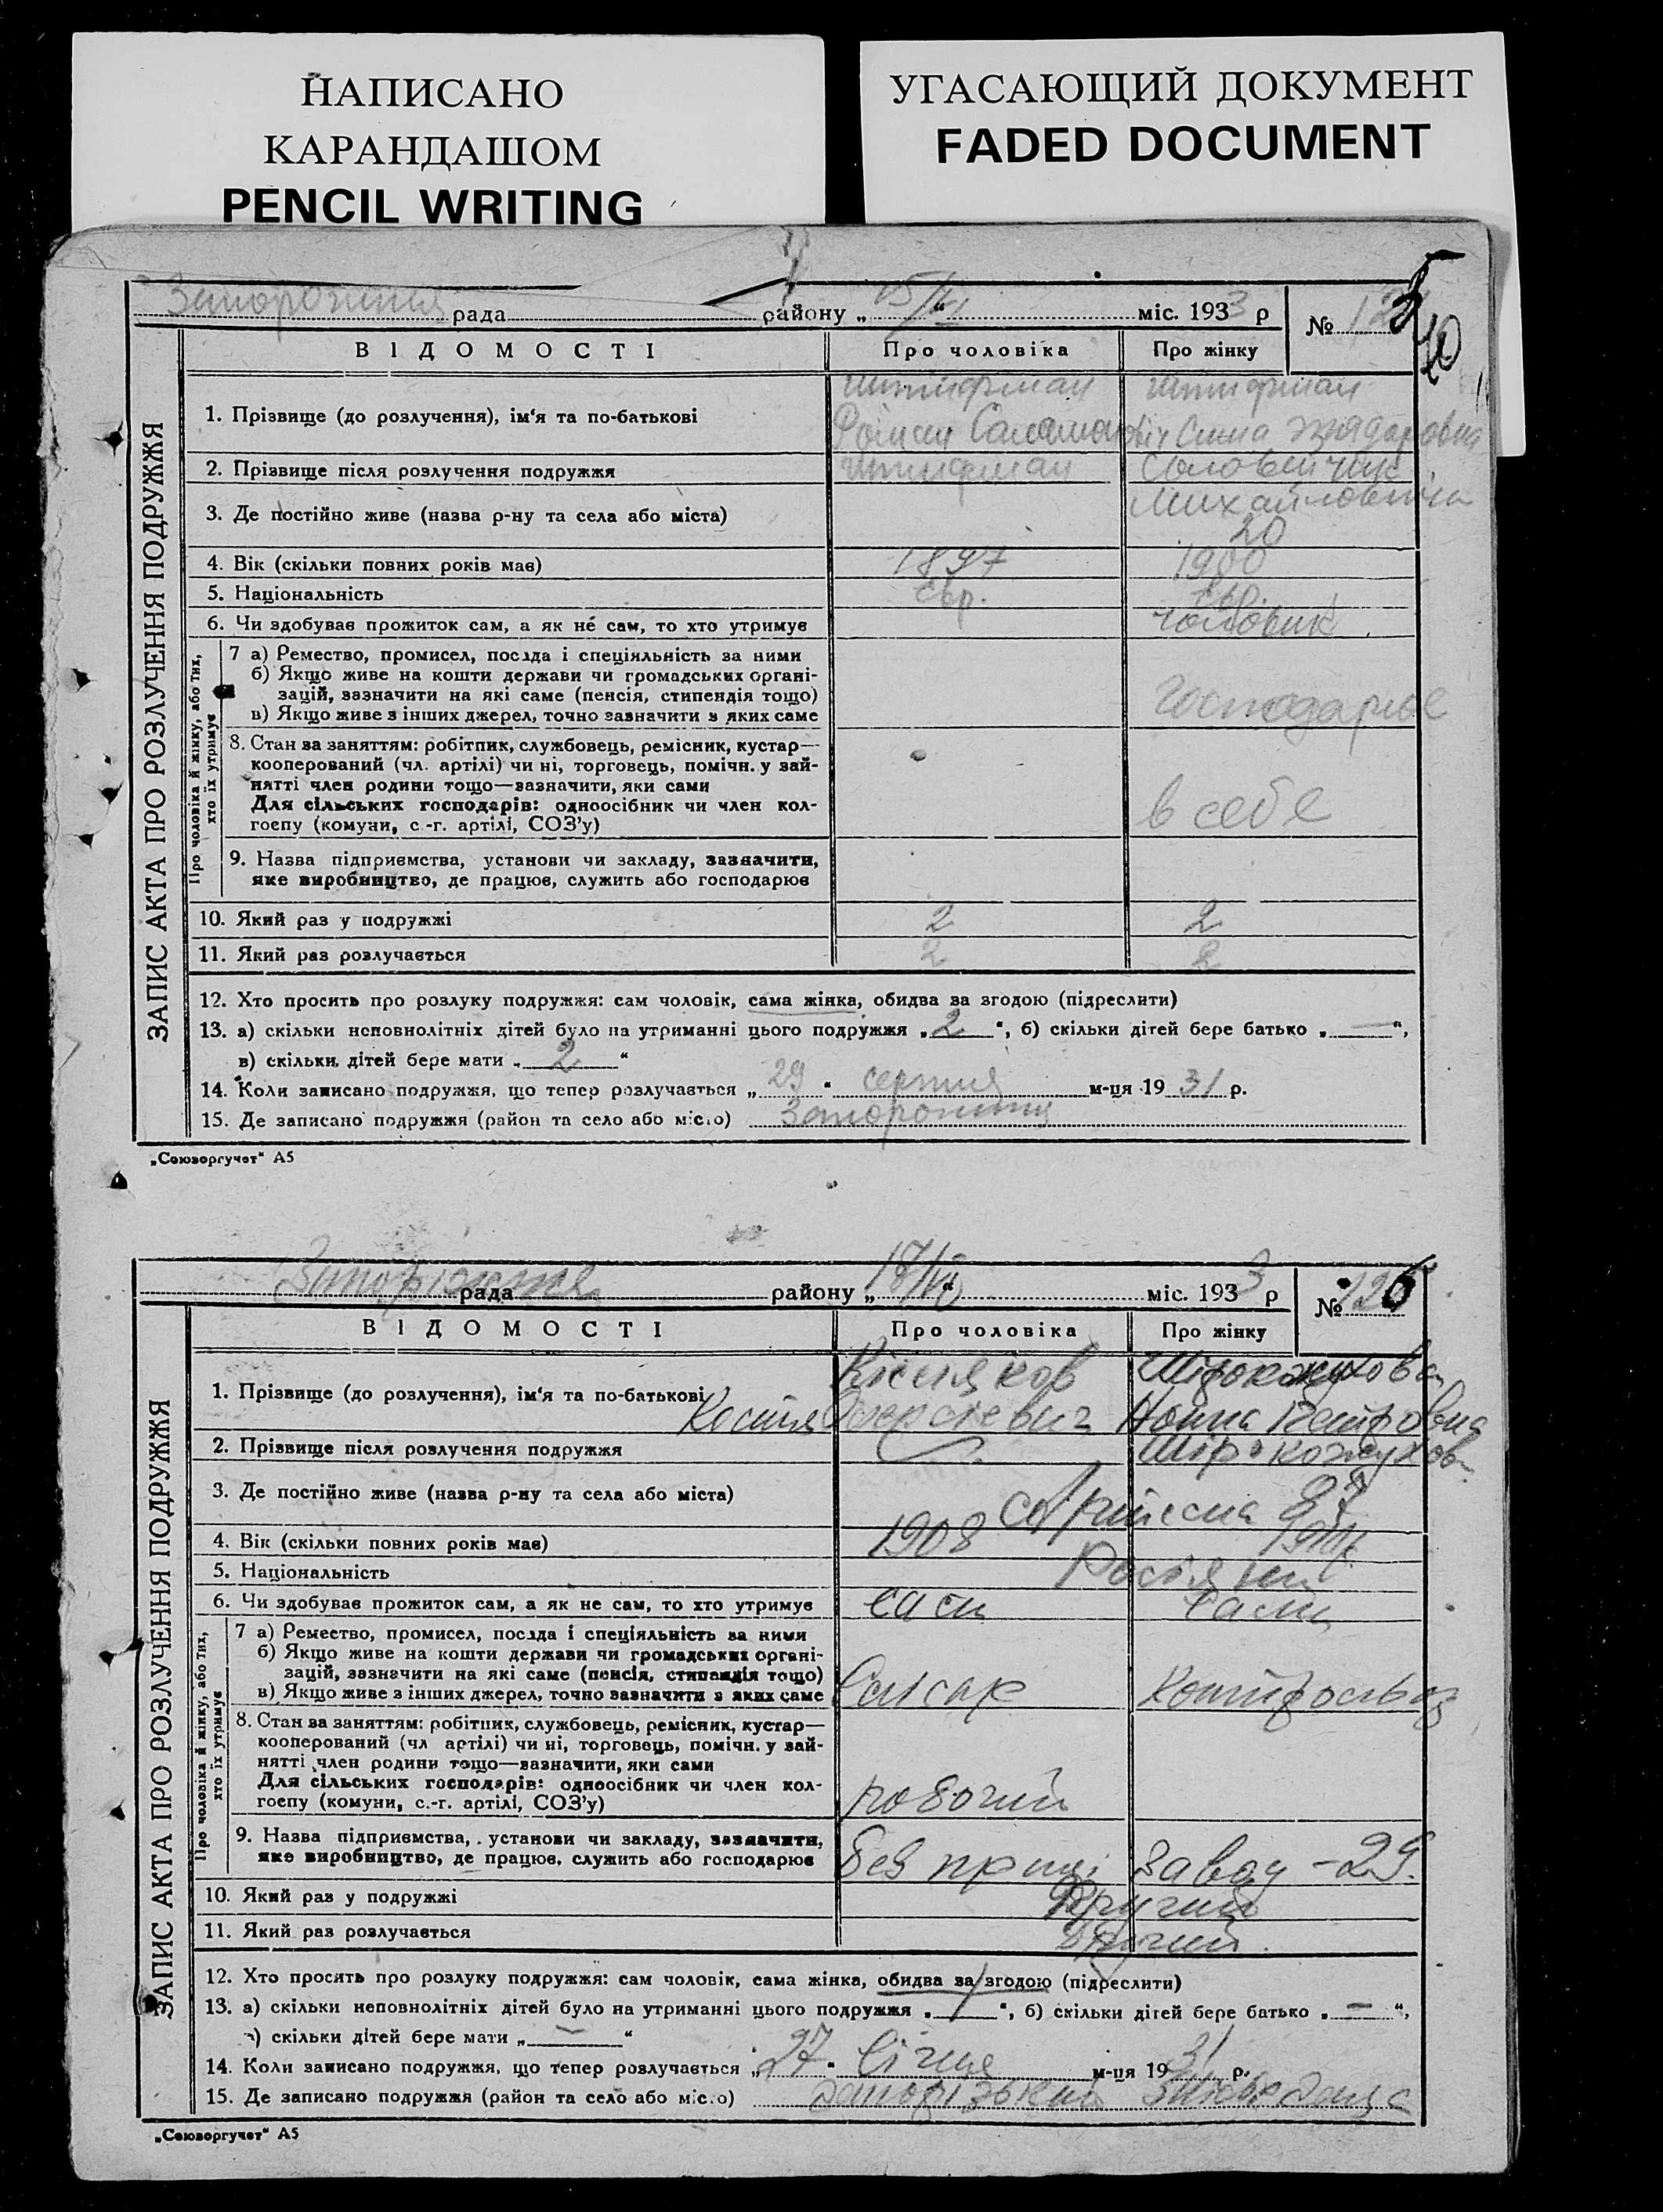 НАПИСАНО
КАРАНДАШОМ
PENCIL WRITING
УГАСАЮЩИЙ ДОКУМЕНТ
FADED DOCUMENT
ЗАПИС АКТА ПРО РОЗЛУЧЕННЯ ПОДРУЖЖЯ
рада району „ “ міс. 1933 р № 12
ВІДОМОСТІ Про чоловіка Про жінку
Штифман Штифман
1. Прізвище (до розлучення), ім'я та по-батькові
2. Прізвище після розлучення подружжя Штифман
3. Де постійно живе (назва р-ну та села або міста)
20
4. Вік (скільки повних років має) 1897 1900
5. Національність євр. євр.
6. Чи здобуває прожиток сам, а як не сам, то хто утримує чоловик
Про чоловіка й жінку, або тих, хто їх утримує
7 а) Ремество, промисел, посада і спеціяльність за ними
б) Якщо живе на кошти держави чи громадських органі-
зацій, зазначити на які саме (пенсія, стипендія тощо)
в) Якщо живе з інших джерел, точно зазначити з яких саме
8. Стан за заняттям: робітник, службовець, ремісник, кустар—
кооперований (чл. артілі) чи ні, торговець, помічн. у зай-
нятті член родини тощо—зазначити, яки сами
Для сільських господарів: одноосібник чи член кол-
госпу (комуни, с.-г. артілі, СОЗ'у) в себе
9. Назва підприємства, установи чи закладу, зазначити,
яке виробництво, де працює, служить або господарює
10. Який раз у подружжі 2 2
11. Який раз розлучається 2 2
12. Хто просить про розлуку подружжя: сам чоловік, сама жінка, обидва за згодою (підреслити)
13. а) скільки неповнолітніх дітей було на утриманні цього подружжя „ 2 “, б) скільки дітей бере батько „ — “,
в) скільки дітей бере мати „ 2 “
14. Коли записано подружжя, що тепер розлучається „ 29 “ серпня м-ця 1931 р.
15. Де записано подружжя (район та село або місто)
„Союзоргучет“ А5
ЗАПИС АКТА ПРО РОЗЛУЧЕННЯ ПОДРУЖЖЯ
рада району „ “ міс. 1933 р № 126
ВІДОМОСТІ Про чоловіка Про жінку
1. Прізвище (до розлучення), ім'я та по-батькові
2. Прізвище після розлучення подружжя —
3. Де постійно живе (назва р-ну та села або міста)
4. Вік (скільки повних років має) 1908
5. Національність Росіяни
6. Чи здобуває прожиток сам, а як не сам, то хто утримує сам сама
Про чоловіка й жінку, або тих, хто їх утримує
7 а) Ремество, промисел, посада і спеціяльність за ними
б) Якщо живе на кошти держави чи громадських органі-
зацій, зазначити на які саме (пенсія, стипендія тощо)
в) Якщо живе з інших джерел, точно зазначити з яких саме Слюсар
8. Стан за заняттям: робітник, службовець, ремісник, кустар—
кооперований (чл. артілі) чи ні, торговець, помічн. у зай-
нятті член родини тощо—зазначити, яки сами
Для сільських господарів: одноосібник чи член кол-
госпу (комуни, с.-г. артілі, СОЗ'у) робочий
9. Назва підприємства, установи чи закладу, зазначити,
яке виробництво, де працює, служить або господарює без праці завод -29.
10. Який раз у подружжі Другий
11. Який раз розлучається другий.
12. Хто просить про розлуку подружжя: сам чоловік, сама жінка, обидва за згодою (підреслити)
13. а) скільки неповнолітніх дітей було на утриманні цього подружжя „ “, б) скільки дітей бере батько „ — “,
в) скільки дітей бере мати „ — “
14. Коли записано подружжя, що тепер розлучається „ 27 “ Січня м-ця 1931 р.
15. Де записано подружжя (район та село або місто) Запорізький
„Союзоргучет“ А5